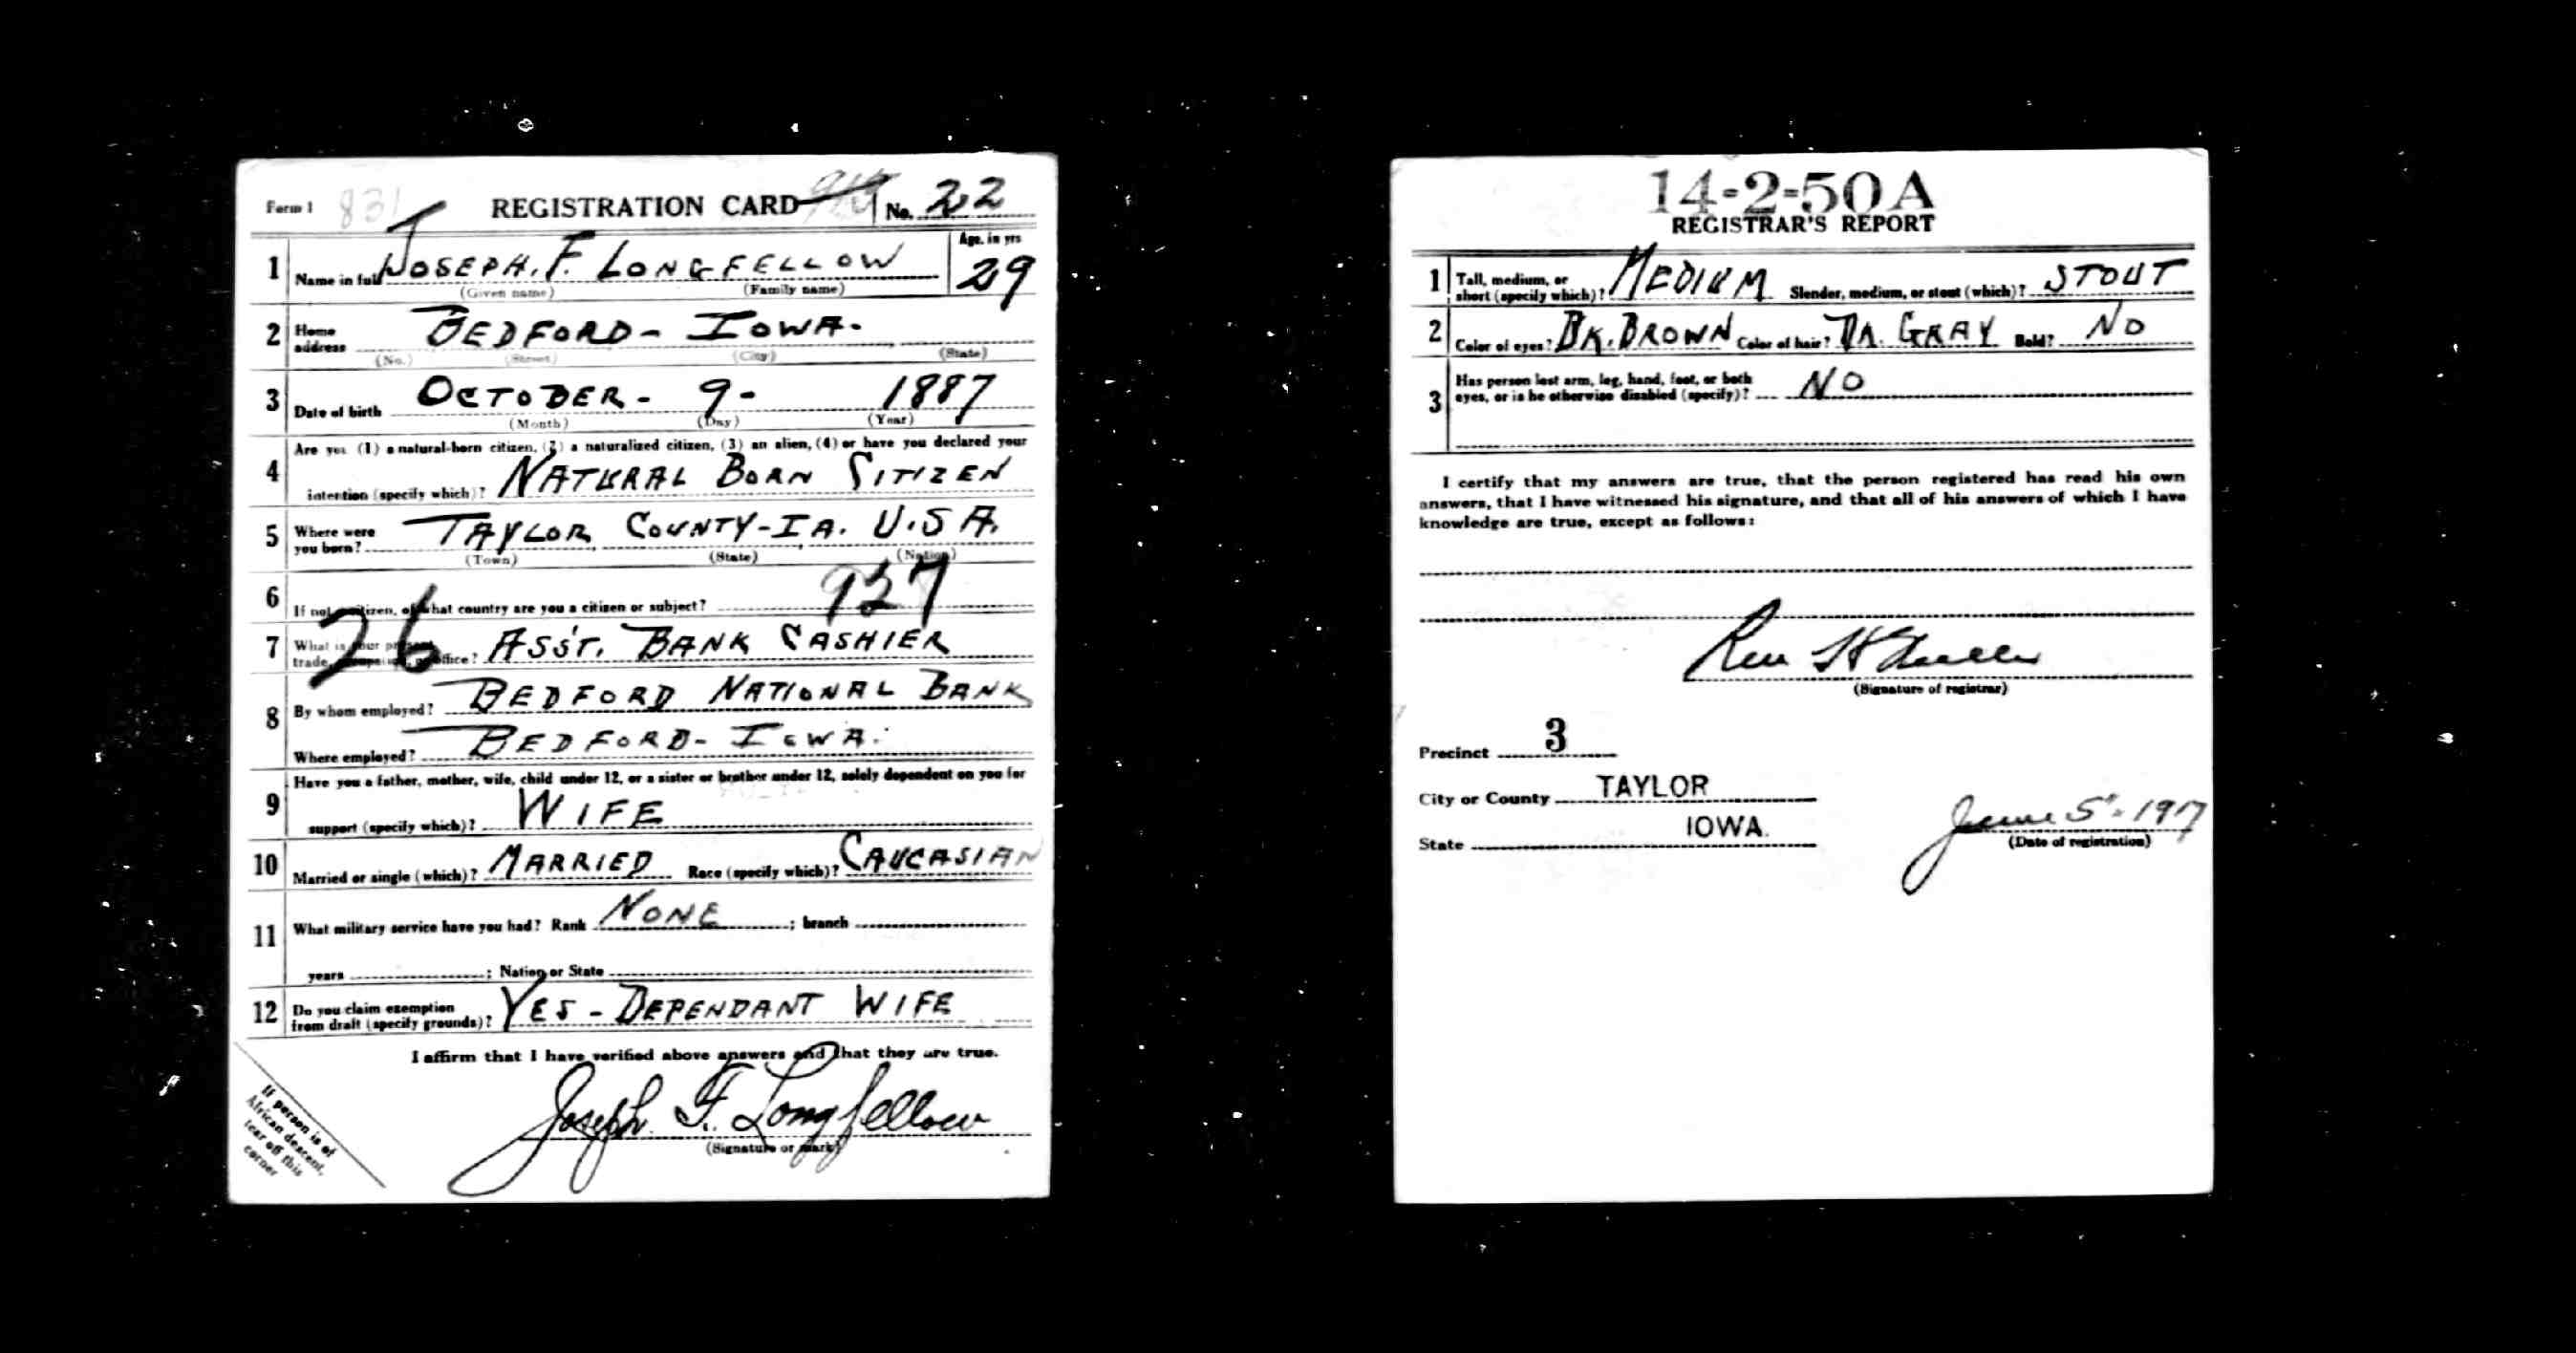 Form 1 831 REGISTRATION CARD No. 22
1 Name in full JOSEPH. F. LONGFELLOW Age, in yrs 29
(Given name) (Family name)
2 Home address BEDFORD - IOWA.
(No.) (Street) (City) (State)
3 Date of birth OCTOBER - 9 - 1887
(Month) (Day) (Year)
Are you (1) a natural-born citizen, (2) a naturalized citizen, (3) an alien, (4) or have you declared your
4 intention (specify which)? NATURAL BORN SITIZEN
5 Where were you born? TAYLOR COUNTY - IA. U.S.A.
(Town) (State) (Nation)
6 If not a citizen, of what country are you a citizen or subject? 927
26
7 What is your present trade, occupation, or office? ASS'T. BANK CASHIER
8 By whom employed? BEDFORD NATIONAL BANK
Where employed? BEDFORD - IOWA.
Have you a father, mother, wife, child under 12, or a sister or brother under 12, solely dependent on you for
9 support (specify which)? WIFE
10 Married or single (which)? MARRIED Race (specify which)? CAUCASIAN
11 What military service have you had? Rank NONE ; branch
years ; Nation or State
12 Do you claim exemption from draft (specify grounds)? YES - DEPENDANT WIFE
I affirm that I have verified above answers and that they are true.
Joseph F. Longfellow
(Signature or mark)
If person is of
African descent,
tear off this
corner
14-2-50 A
REGISTRAR'S REPORT
1 Tall, medium, or short (specify which)? MEDIUM Slender, medium, or stout (which)? STOUT
2 Color of eyes? DK. BROWN Color of hair? DA. GRAY Bald? NO
3 Has person lost arm, leg, hand, foot, or both
eyes, or is he otherwise disabled (specify)? NO
I certify that my answers are true, that the person registered has read his own
answers, that I have witnessed his signature, and that all of his answers of which I have
knowledge are true, except as follows:
(Signature of registrar)
Precinct 3
City or County TAYLOR
State IOWA.
June 5 - 1917
(Date of registration)